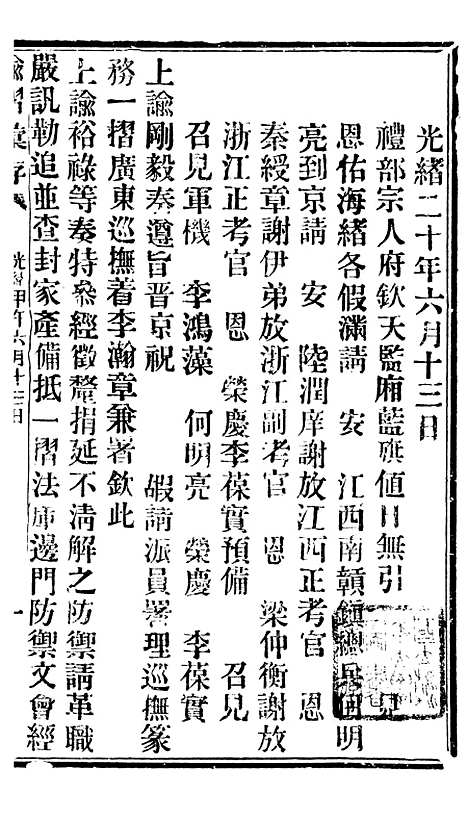 光緒二十年六月十三日
禮部宗人府欽天監廂藍旗値日無引 見
恩佑海緒各假滿請 安 江西南贛鎭總兵何明
亮到京請 安 陸潤庠謝放江西正考官 恩
秦綬章謝伊弟放浙江副考官 恩 梁仲衡謝放
浙江正考官 恩 榮慶李葆實預備 召見
召見軍機 李鴻藻 何明亮 榮慶 李葆實
上諭剛毅奏遵旨晉京祝 嘏請派員署理巡撫篆
務一摺廣東巡撫着李瀚章兼署欽此
上諭裕祿等奏特叅經徵釐捐延不淸解之防禦請革職
嚴訊勒追並查封家產備抵一摺法庫邊門防禦文會經
諭摺彙存 光緒甲午六月十三日 一